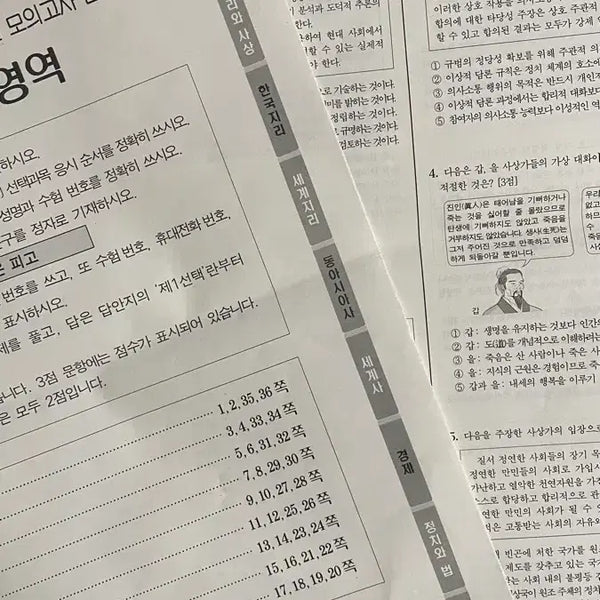 모의고사
영역
하시오.
선택과목 응시 순서를 정확히 쓰시오.
성명과 수험 번호를 정확히 쓰시오.
구를 정자로 기재하시오.
은 피고
번호를 쓰고, 또 수험 번호, 휴대전화 번호,
표시하시오.
제를 풀고, 답은 답안지의 ‘제1선택’란부터
니다. 3점 문항에는 점수가 표시되어 있습니다.
은 모두 2점입니다.
1, 2, 35, 36 쪽
3, 4, 33, 34 쪽
5, 6, 31, 32 쪽
7, 8, 29, 30 쪽
9, 10, 27, 28 쪽
11, 12, 25, 26 쪽
13, 14, 23, 24 쪽
15, 16, 21, 22 쪽
17, 18, 19, 20 쪽
리와 사상
한국지리
세계지리
동아시아사
세계사
경제
정치와 법
분석과 도덕적 추론의
한다.
하여 현대 사회에서
할 수 있는 실제적
야 한다.
로 기술하는 것이다.
미를 밝히는 것이다.
정립하는 것이다.
로 규명하는 것이다.
검토하는 것이다.
이러한 상호 작용을
합의에 대한 타당성 주장은 상호 주관적
할 수 있고 합의된 결과는 모두가 강제
① 규범의 정당성 확보를 위해 주관적
② 이상적 담론 규칙은 정치 체계의 호소에
③ 의사소통 행위의 목적은 반드시 개인적
④ 이상적 담론 과정에서는 합리적 대화보다
⑤ 참여자의 의사소통 능력보다 이성적인
4. 다음은 갑, 을 사상가들의 가상 대화이
적절한 것은? [3점]
진인(眞人)은 태어남을 기뻐하거나
죽는 것을 싫어할 줄 몰랐으므로
탄생에 기뻐하지도 않았고 죽음을
거부하지도 않았습니다. 생사(生死)는
그저 주어진 것으로 만족하고 덤덤
하게 되돌아갈 뿐입니다.
우리
없고
하므
수
죽음
갑
① 갑: 생명을 유지하는 것보다 인간의
② 갑: 도(道)를 개념적으로 이해하려는
③ 을: 죽음은 산 사람이나 죽은 사
④ 을: 지식의 근원은 경험이므로 죽
⑤ 갑과 을: 내세의 행복을 이루기
5. 다음을 주장한 사상가의 입장으로
질서 정연한 사회들의 장기 목
정연한 만민들의 사회로 가입시
가난하고 열악한 천연자원을 가
스스로 합당하고 합리적으로 관
정연한 만민의 사회가 될 수 있
적은 고통받는 사회의 자유와
빈곤에 처한 국가를 원조
제도를 갖추고 있는
는 사회 내의 불평등
상국이 원조 주체의 정치